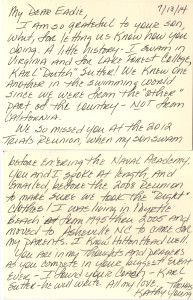 7/13/14
My dear Eadie,
I am so grateful to your son,
for letting us know how you
doing. A little history: I swam in
Virginia and for Lake Forest College,
Karl "Dutch" Sutter! We knew one
another in the swimming world
since we were from the "other"
part of the country - NOT from
California.
We so missed you at the 2012
Trials Reunion, when my son swam
before entering the Naval Academy.
You and I spoke at length, and
emailed before the 2008 Reunion
to make sure we took the "right"
clothes! I was living in
Beach from 1975 then 2005 and
moved to Asheville NC to care for
my parents. I know Hilton Head well.
You are in my thoughts and prayers
as you compete in your biggest event
ever - I loved your Coach - Karl
Sutter - he will write. All my love,
Kathy